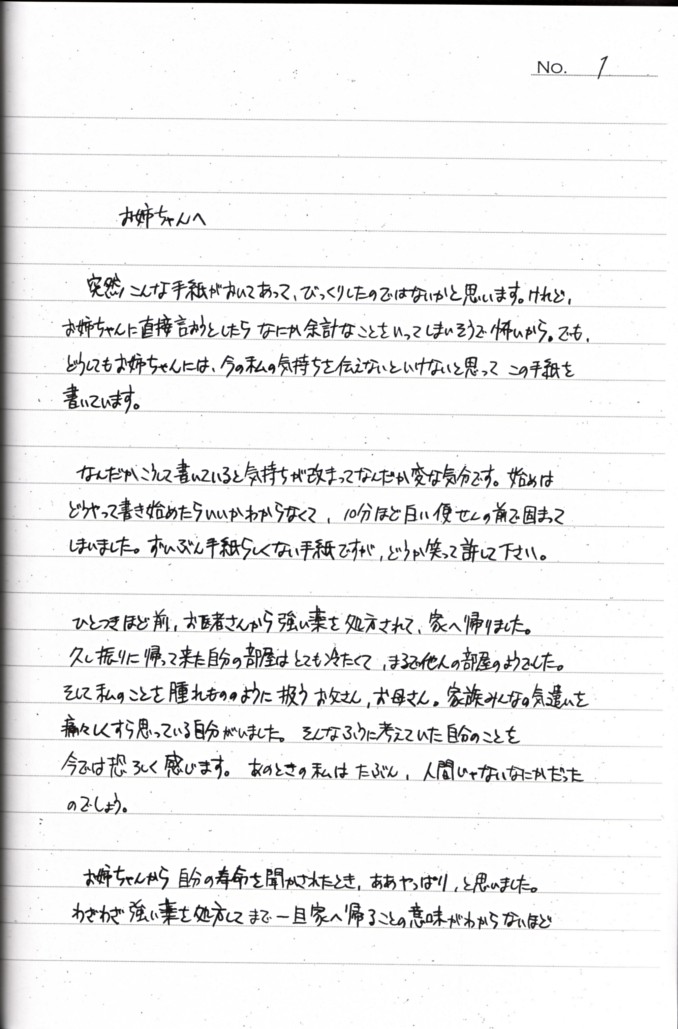 No. 1
お姉ちゃんへ
突然こんな手紙がおいてあって、びっくりしたのではないかと思います。けれど、
お姉ちゃんに直接言おうとしたらなにか余計なことをいってしまいそうで怖いから。でも、
どうしてもお姉ちゃんには、今の私の気持ちを伝えないといけないと思ってこの手紙を
書いています。
なんだかこうして書いていると気持ちが改まってなんだか変な気分です。始めは
どうやって書き始めたらいいかわからなくて、10分ほど白い便せんの前で固まって
しまいました。ずいぶん手紙らしくない手紙ですが、どうか笑って許して下さい。
ひとつきほど前、お医者さんから強い薬を処方されて、家へ帰りました。
久し振りに帰って来た自分の部屋はとても冷たくて、まるで他人の部屋のようでした。
そして私のことを腫れもののように扱うお父さん、お母さん。家族みんなの気遣いを
痛々しくすら思っている自分がいました。そんなふうに考えていた自分のことを
今では恐ろしく感じます。あのときの私はたぶん、人間じゃないなにかだった
のでしょう。
お姉ちゃんから自分の寿命を聞かされたとき、ああやっぱり、と思いました。
わざわざ強い薬を処方してまで一旦家へ帰ることの意味がわからないほど